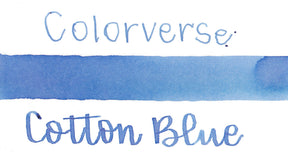 Colorverse
Cotton Blue